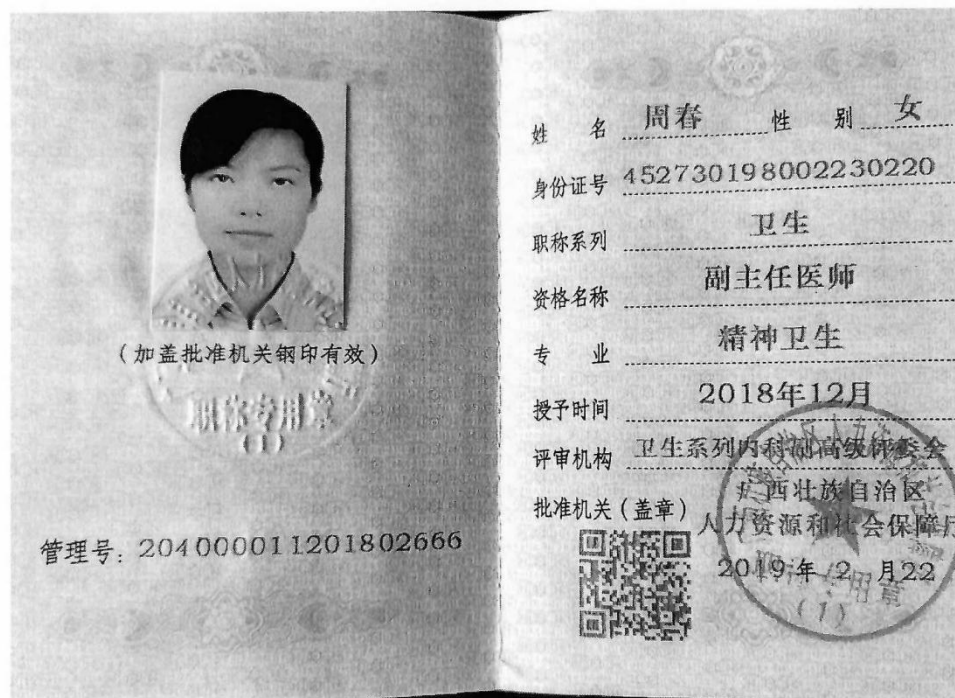 (加盖批准机关钢印有效)
职称专用章
(1)
管理号: 204000011201802666
姓 名 周春 性 别 女
身份证号 452730198002230220
职称系列 卫生
资格名称 副主任医师
专 业 精神卫生
授予时间 2018年12月
评审机构 卫生系列内科副高级评委会
批准机关(盖章) 广西壮族自治区
人力资源和社会保障厅
2019年 2 月22
职称专用章
(1)